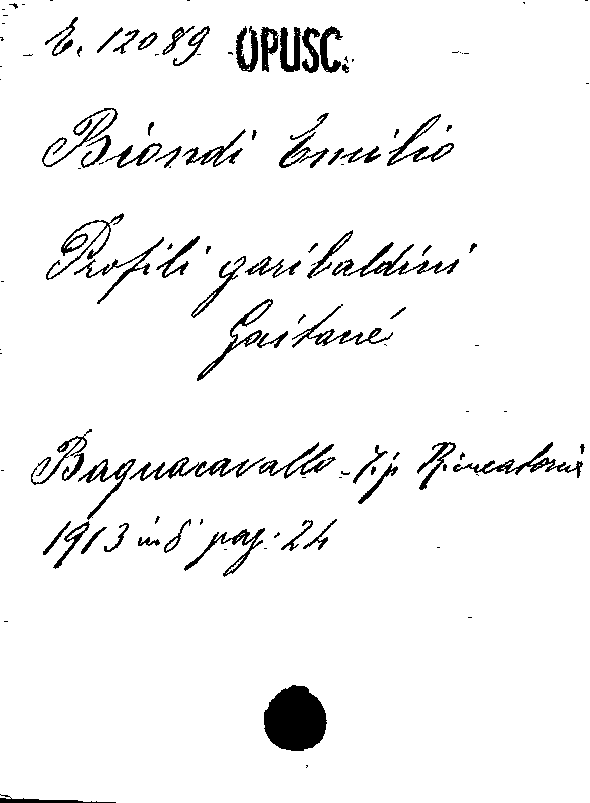 E. 12089 OPUSC.
Biondi Emilio
Profili garibaldini
Gaitané
Bagnacavallo - Tip Ricreatorio
1913 in 8° pag: 24